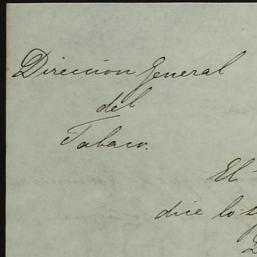 Direccion General
del
Tabaco.
El
dice lo